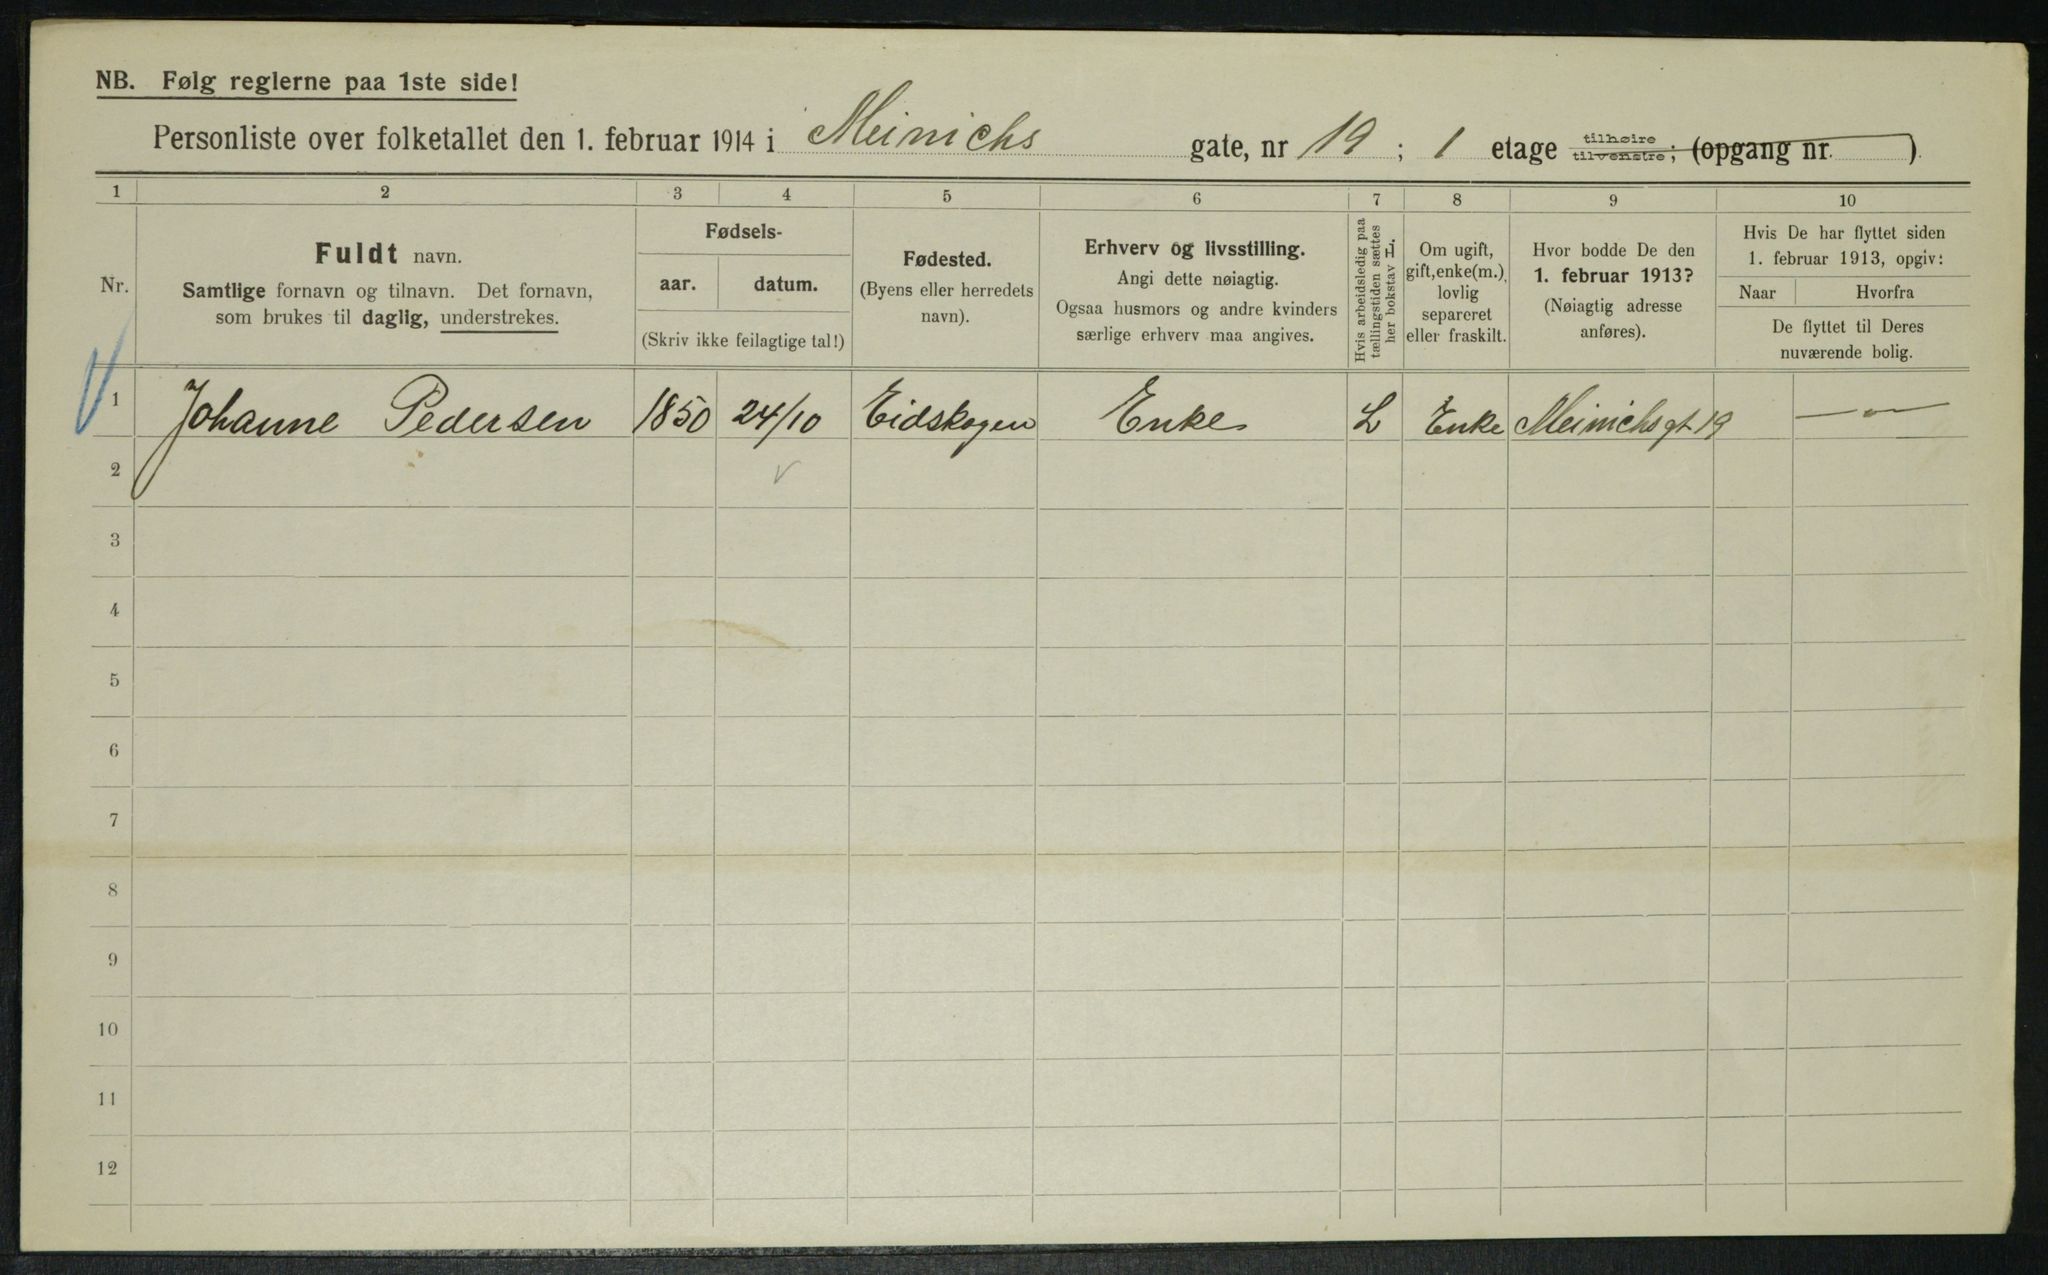 NB. Følg reglerne paa 1ste side!
Personliste over folketallet den 1. februar 1914 i Meinichs gate, nr 19 ; 1 etage tilhøire tilvenstre; (opgang nr. )
1 2 3 4 5 6 7 8 9 10
Nr.
Fuldt navn.
Samtlige fornavn og tilnavn. Det fornavn,
som brukes til daglig, understrekes.
Fødsels-
aar. datum.
(Skriv ikke feilagtige tal!)
Fødested.
(Byens eller herredets
navn).
Erhverv og livsstilling.
Angi dette nøiagtig.
Ogsaa husmors og andre kvinders
særlige erhverv maa angives.
Hvis arbeidsledig paa
tællingstiden sættes
her bokstav L.
Om ugift,
gift, enke(m.),
lovlig
separeret
eller fraskilt.
Hvor bodde De den
1. februar 1913?
(Nøiagtig adresse
anføres).
Hvis De har flyttet siden
1. februar 1913, opgiv:
Naar Hvorfra
De flyttet til Deres
nuværende bolig.
1 Johanne Pedersen 1850 24/10 Eidskogen Enke L Enke Meinichsgt 19 —"—
2
3
4
5
6
7
8
9
10
11
12